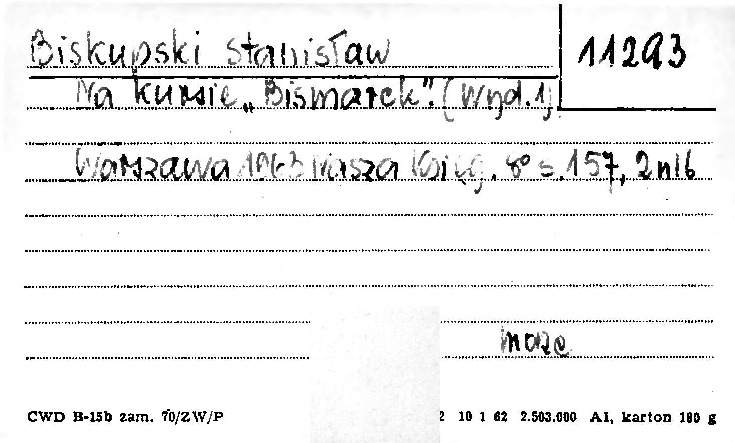 Biskupski Stanisław
11293
Na kursie „Bismarck”. (Wyd. 1)
Warszawa 1963 Nasza Księg. 8° s. 157, 2 nlb
morze
CWD B-15b zam. 70/ZW/P
2 10 1 62 2.503.000 A1, karton 180 g